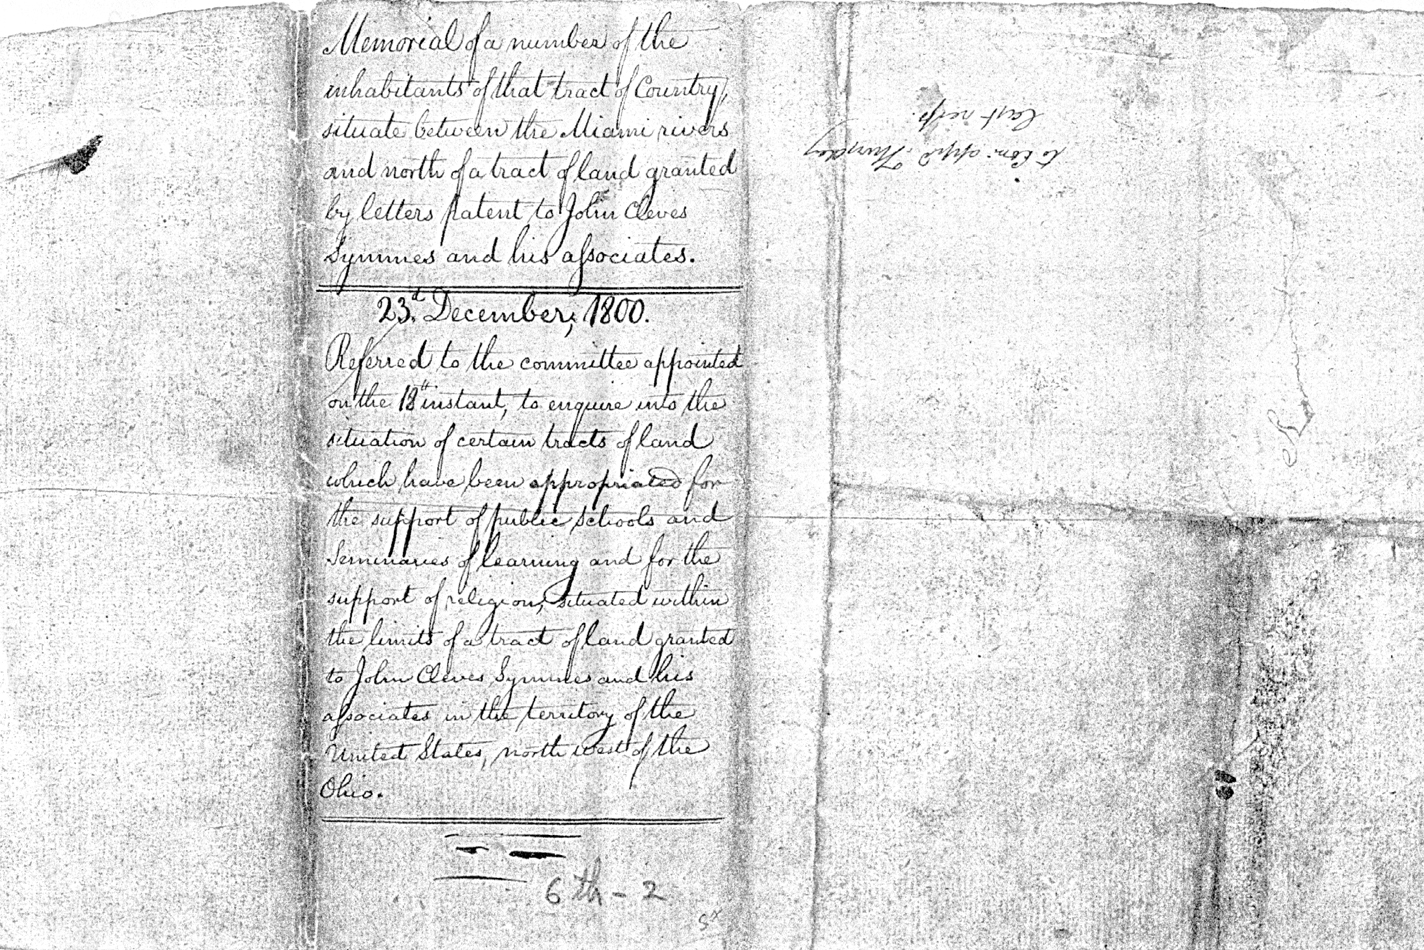 Memorial of a number of the
inhabitants of that tract of Country,
situate between the Miami rivers
and north of a tract of land granted
by letters patent to John Cleves
Symmes and his associates.
23.d December, 1800.
Referred to the committee appointed
on the 18th instant, to enquire into the
situation of certain tracts of land
which have been appropriated for
the support of public schools and
Seminaries of learning and for the
support of religion, situated within
the limits of a tract of land granted
to John Cleves Symmes and his
associates in the territory of the
United States, north west of the
Ohio.
6th - 2
to Com: app.d Thursday
last